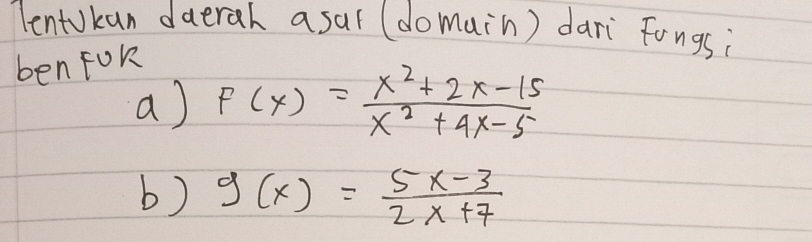 Tentukan daerah asal (domain) dari fungsi
bentuk
a) F(x) = x²+2x-15 / x²+4x-5
b) g(x) = 5x-3 / 2x+7